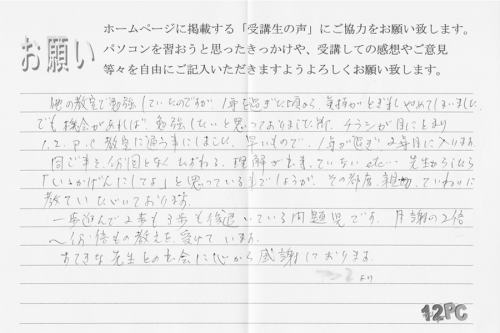 お願い
ホームページに掲載する「受講生の声」にご協力をお願い致します。
パソコンを習おうと思ったきっかけや、受講しての感想やご意見
等々を自由にご記入いただきますようよろしくお願い致します。
他の教室で勉強していたのですが、1年を過ぎた頃から、気持がとぎれ やめてしまいました。
でも機会があれば、勉強したいと思っておりました所、チラシが目にとまり
1.2.P.C 教室に通う事にしました。早いもので、1年が過ぎ 2年目に入ります。
同じ事を何回となくたずねる、理解が出来ていない etc… 先生からしたら
「いいかげんにしてよ」と思っているでしょうが、その都度、親切、ていねいに
教えていただいております。
一歩進んで2歩も3歩も後退している問題児です。月謝の2倍
〜何倍もの教えを受けています。
すてきな先生との出会に心から感謝しております。
より
12PC